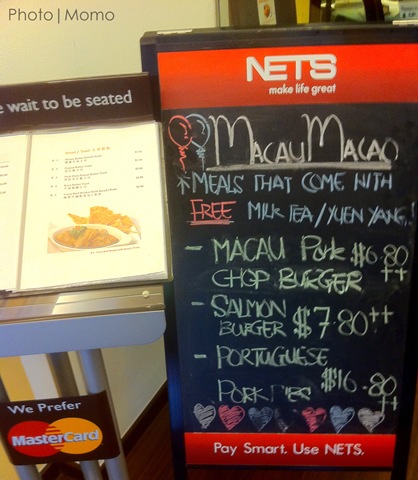 Photo | Momo
e wait to be seated
NETS
make life great
MACAU MACAO
↑MEALS THAT COME WITH
FREE MILK TEA / YUEN YANG!
- MACAU Pork $6.80
CHOP BURGER ++
- SALMON
BURGER $7.80++
- PORTUGUESE
PORK PIER $16.80
++
We Prefer
MasterCard
Pay Smart. Use NETS.